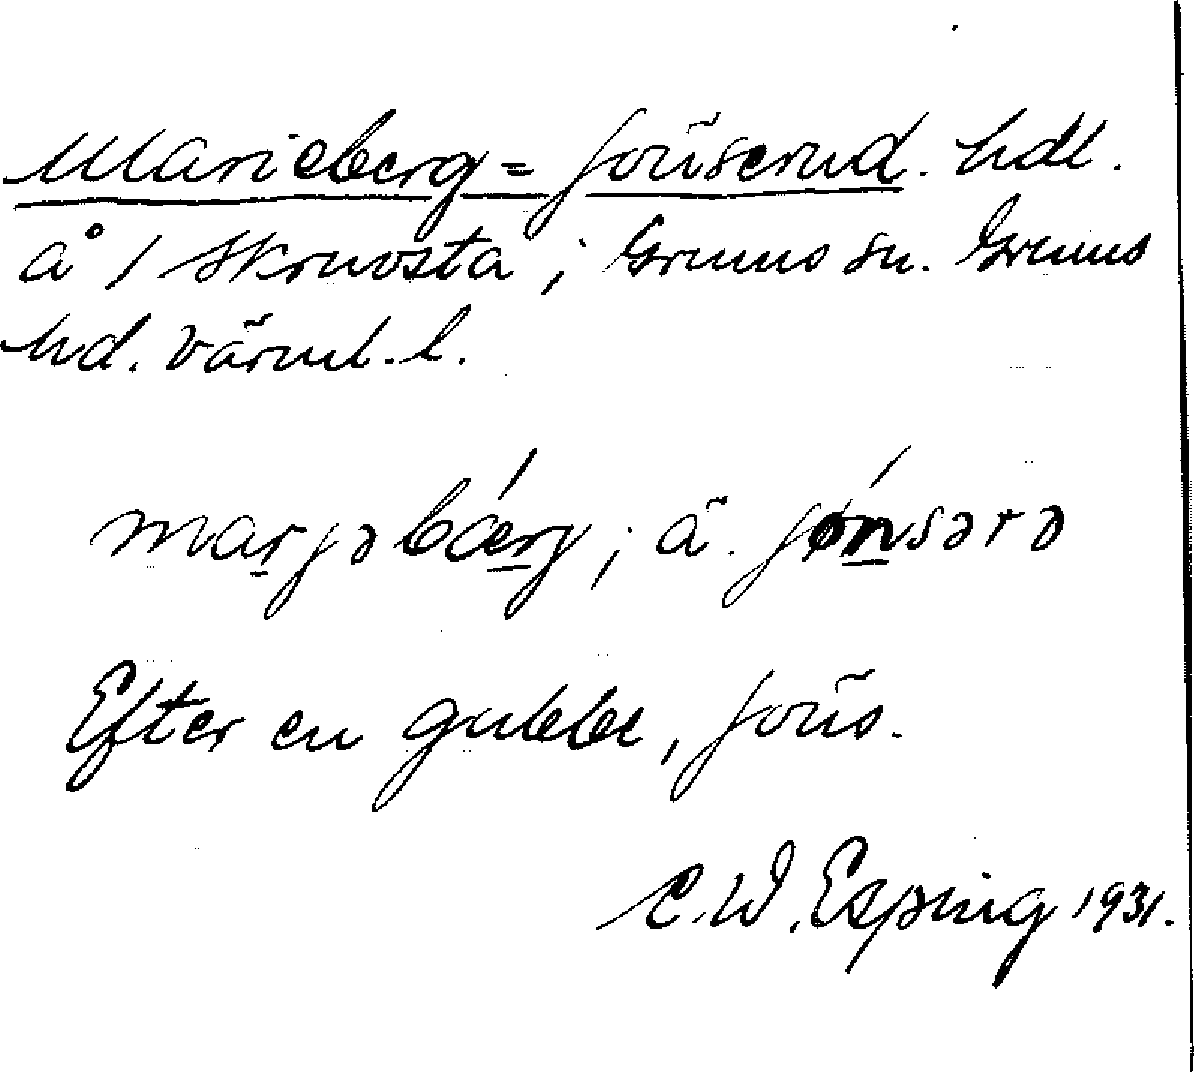 Marieberg = Jönserud. hdl.
å 1 Skruvsta, i Grums sn. Grums
hd. Värml. l.
marjəbǽrg; ä. jǿnsərə
Efter en gubbe, Jöns.
C. W. Esping 1931.